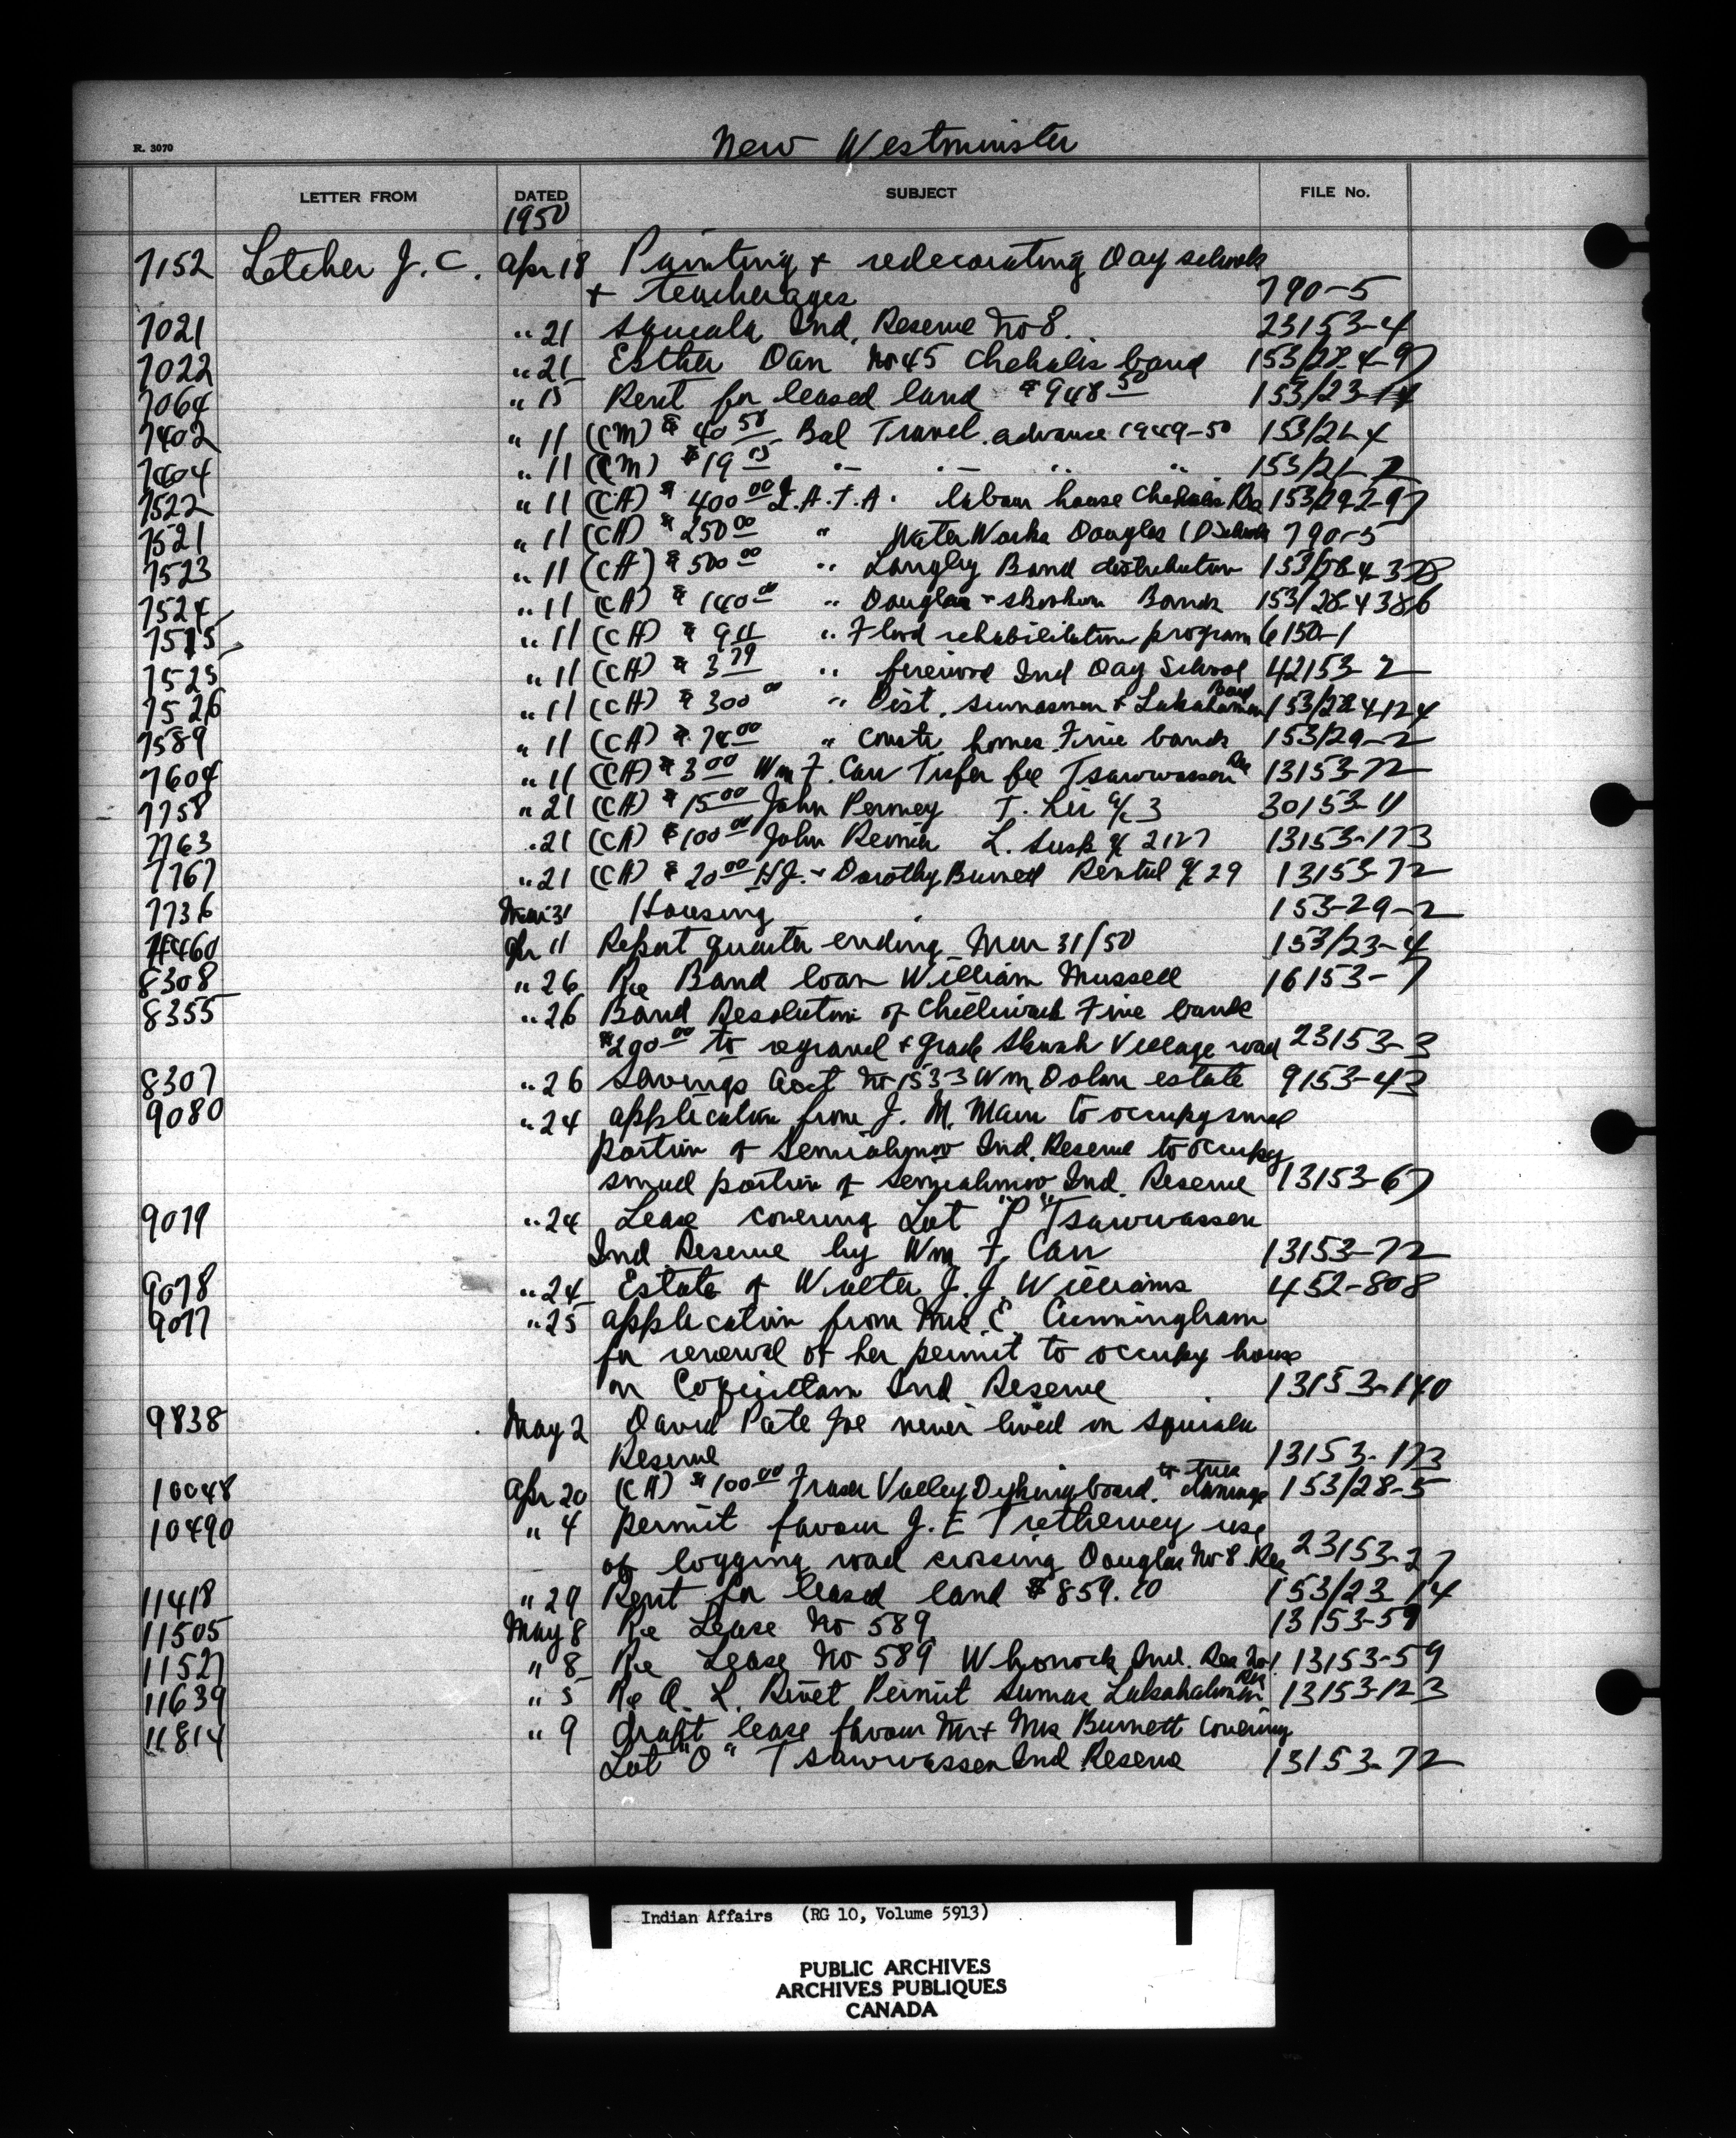 New Westminster
R. 3070
LETTER FROM DATED SUBJECT FILE No.
1950
7152 Letcher J. C. Apr 18 Painting & redecorating Day schools
& teacherages 790-5
7021 " 21 Squiala Ind. Reserve No 8. 23153-4
7022 " 21 Esther Dan No 45 Chehalis band 153/28-4-97
7064 " 15 Rent for leased land $948.50 153/23-14
7402 " 11 (CM) $40.50 Bal Travel advance 1949-50 153/21-4
7404 " 11 (CM) $19.15 " " " " 153/21-2
7522 " 11 (CA) $400.00 I.A.T.A. labour house Chehalis Res 153/29-2-97
7521 " 11 (CA) $250.00 " Water Works Douglas I D School 790-5
7523 " 11 (CA) $500.00 " Langley Band distribution 153/28-4-378
7524 " 11 (CA) $140.00 " Douglas & Skookum Bands 153/28-4386
7515 " 11 (CA) $9.11 " Flood rehabilitation program 6150-1
7525 " 11 (CA) $3.79 " Ind Day School 42153-2
7526 " 11 (CA) $300.00 " Dist. & Lakahahmen Band 153/28-4-124
7589 " 11 (CA) $78.00 " Constr. homes Five bands 153/29-2
7604 " 11 (CA) $3.00 Wm F. Carr Trsfer fee Tsawwassen Res 13153-72
7758 " 21 (CA) $15.00 John Penney T. 3 30153-11
7763 " 21 (CA) $100.00 John Reimer L. 2127 13153-173
7767 " 21 (CA) $20.00 H.J. & Dorothy Burnett Rental 29 13153-72
7736 Mar 31 Housing 153-29-2
7460 Apr 11 Report quarter ending Mar 31/50 153/23-4
8308 " 26 Re Band loan William Mussell 16153-7
8355 " 26 Band Resolution of Chilliwack Five bands
$290.00 to regravel & grade Skwah Village road 23153-3
8307 " 26 Savings Acct No 1533 Wm Dolan estate 9153-43
9080 " 24 application from J. M. Main to occupy small
portion of Semiahmoo Ind. Reserve to occupy
small portion of Semiahmoo Ind. Reserve 13153-67
9079 " 24 Lease covering Lot "P" Tsawwassen
Ind Reserve by Wm F. Carr 13153-72
9078 " 24 Estate of Walter J. J. Williams 452-808
9077 " 25 application from Mrs. E. Cunningham
for renewal of her permit to occupy house
on Coquitlam Ind Reserve 13153-140
9838 May 2 David Pate Joe never lived on Squiala
Reserve 13153-173
10048 Apr 20 (CA) $100.00 Fraser Valley Dyking board. to tree damage 153/28-5
10490 " 4 permit favour J. E Trethewey use
of logging road crossing Douglas No 8 Res 23153-27
11418 " 29 Rent for leased land $859.10 153/23-14
11505 May 8 Re Lease No 589 13153-59
11527 " 8 Re Lease No 589 Whonock Ind. Res No 1. 13153-59
11639 " 5 Re A. L. Rivet Permit Sumas Lakahahmen Res 13153-123
11814 " 9 draft lease favour Mr & Mrs Burnett covering
Lot "O" Tsawwassen Ind Reserve 13153-72
Indian Affairs (RG 10, Volume 5913)
PUBLIC ARCHIVES
ARCHIVES PUBLIQUES
CANADA